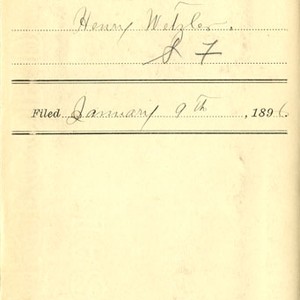 Henry Wetzler.
& F
Filed January 9th, 1896.